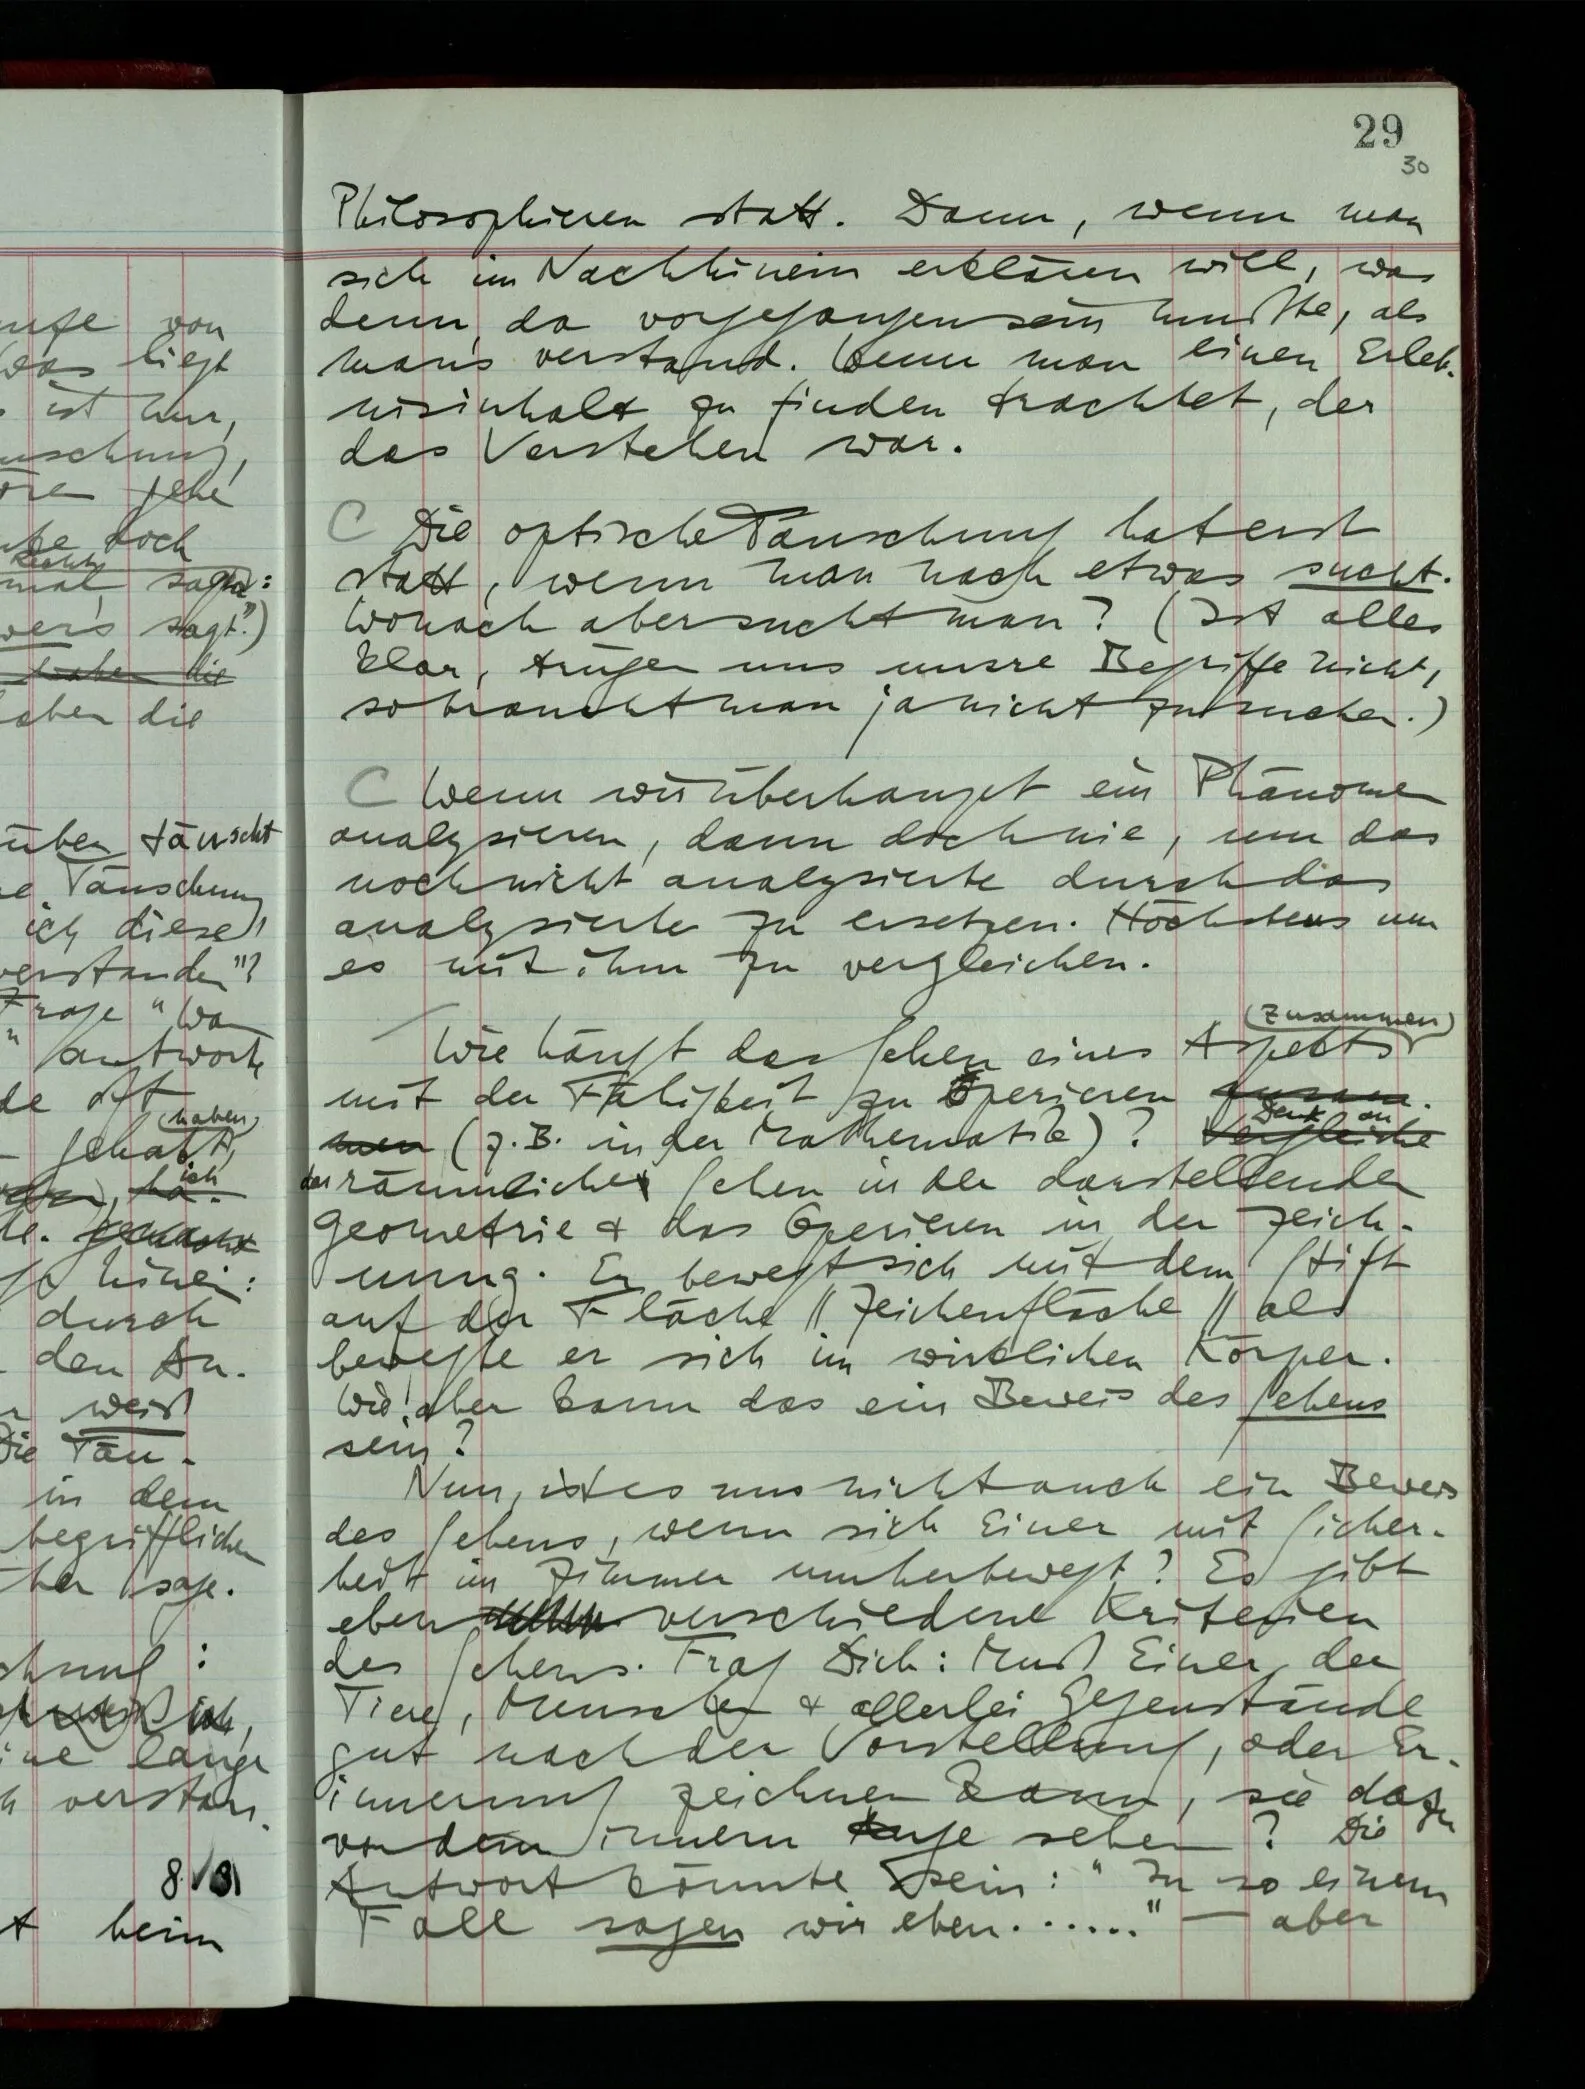 ufe von
Was liegt
ist nur,
uschung,
oren gehe
doch
mal sagen:
wers sagt.")
haben die
aben die
über täuscht
e Täuschung
ich diese
verstanden"?
Frage "Wa
antworte
de oft
(haben)
gehabt,
ich
hinein:
durch
den An-
weiß
Die Täu-
in dem
begrifflichen
her sage.
chnung:
ich,
ine lange
h verstan-
8.131
t beim
29
30
Philosophieren statt. Dann, wenn man
sich im Nachhinein erklären will, was
denn da vorgegangen sein mußte, als
man's verstand. Wenn man einen Erleb-
nisinhalt zu finden trachtet, der
das Verstehen war.
C Die optische Täuschung hat erst
statt, wenn man nach etwas sucht.
Wonach aber sucht man? (Ist alles
klar, trügen uns unsre Begriffe nicht,
so braucht man ja nicht zu suchen.)
C Wenn wir überhaupt ein Phänomen
analysieren, dann doch nie, um das
noch nicht analysierte durch das
analysierte zu ersetzen. Höchstens um
es mit ihm zu vergleichen.
(zusammen)
Wie hängt das Sehen eines Aspekts
mit der Fähigkeit zu Operieren zusam-
men (z.B. in der Mathematik)? Vergleiche
Denk an
das räumliche Sehen in der darstellenden
Geometrie & das Operieren in der Zeich-
nung. Er bewegt sich mit dem Stift
auf der Fläche // Zeichenfläche // als
bewegte er sich im wirklichen Körper.
Wie aber kann das ein Beweis des Sehens
sein?
Nun, ist es uns nicht auch ein Beweis
des Sehens, wenn sich Einer mit Sicher-
heit im Zimmer umherbewegt? Es gibt
eben verschiedene Kriterien
des Sehens. Frag Dich: Muß Einer, der
Tiere, Menschen & allerlei Gegenstände
gut nach der Vorstellung, oder Er-
innerung zeichnen kann, sie dazu
vor dem innern Auge sehen? Die
Antwort könnte sein: "In so einem
Fall sagen wir eben......" — aber